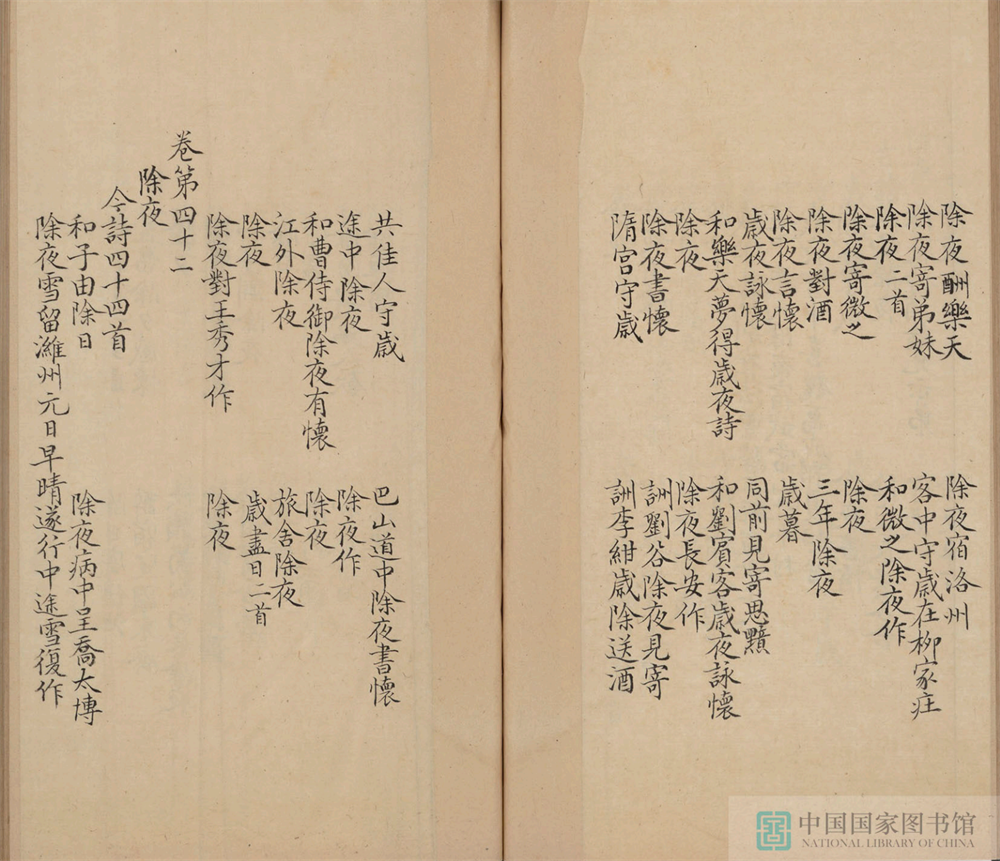 除夜酬樂天　除夜宿洛州
除夜寄弟妹　客中守歲在柳家庄
除夜二首　和微之除夜作
除夜寄微之　除夜
除夜對酒　三年除夜
除夜言懷　歲暮
歲夜詠懷　同前見寄思黯
和樂天夢得歲夜詩　和劉賓客歲夜詠懷
除夜　除夜長安作
除夜書懷　詶劉谷除夜見寄
隋宮守歲　詶李紺歲除送酒
共佳人守歲　巴山道中除夜書懷
途中除夜　除夜作
和曹侍御除夜有懷　除夜
江外除夜　旅舍除夜
除夜　歲盡日二首
除夜對王秀才作　除夜
卷第四十二
除夜
今詩四十四首
和子由除日　除夜病中呈喬太博
除夜雪留濰州元日早晴遂行中途雪復作
中国国家图书馆
NATIONAL LIBRARY OF CHINA